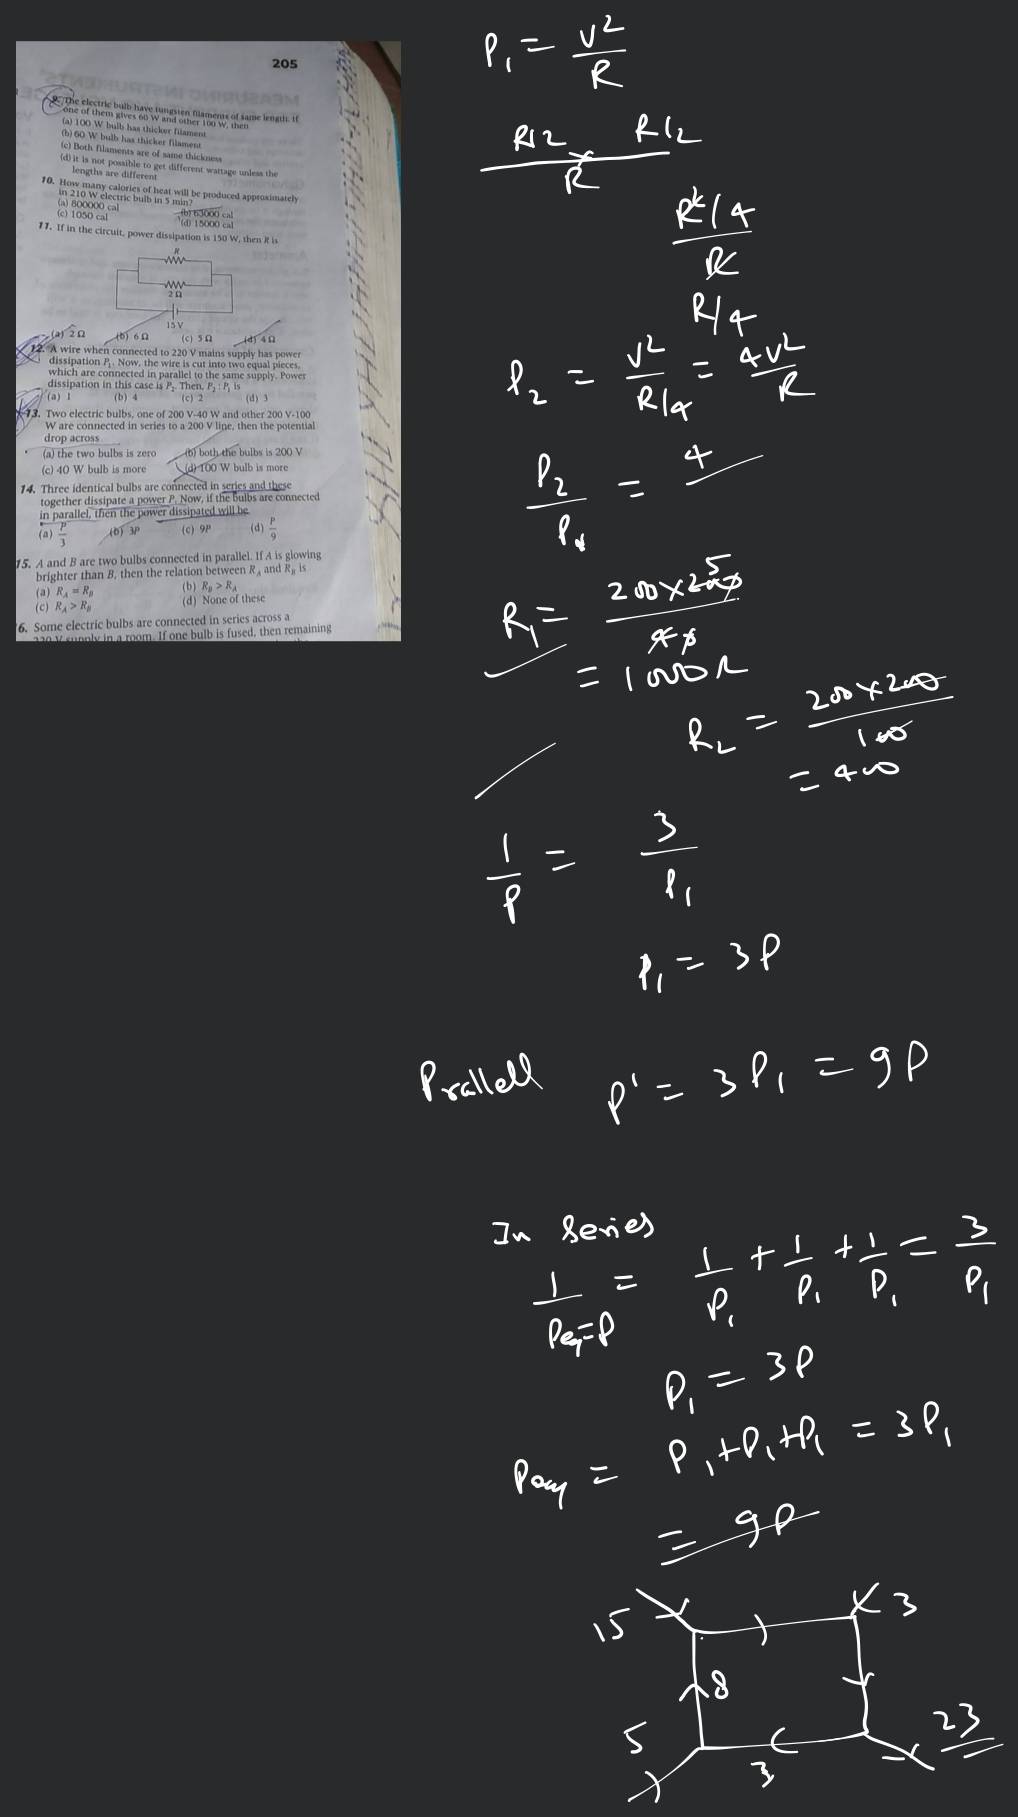 205
9. The electric bulb have tungsten filaments of same length. If
one of them gives 60 W and other 100 W, then
(a) 100 W bulb has thicker filament
(b) 60 W bulb has thicker filament
(c) Both filaments are of same thickness
(d) it is not possible to get different wattage unless the
lengths are different
10. How many calories of heat will be produced approximately
in 210 W electric bulb in 5 min?
(a) 800000 cal (b) 63000 cal
(c) 1050 cal (d) 15000 cal
11. If in the circuit, power dissipation is 150 W, then R is
R
2 Ω
15 V
(a) 2 Ω (b) 6 Ω (c) 5 Ω (d) 4 Ω
12. A wire when connected to 220 V mains supply has power
dissipation P₁. Now, the wire is cut into two equal pieces,
which are connected in parallel to the same supply. Power
dissipation in this case is P₂. Then, P₂ : P₁ is
(a) 1 (b) 4 (c) 2 (d) 3
13. Two electric bulbs, one of 200 V-40 W and other 200 V-100
W are connected in series to a 200 V line, then the potential
drop across
(a) the two bulbs is zero (b) both the bulbs is 200 V
(c) 40 W bulb is more (d) 100 W bulb is more
14. Three identical bulbs are connected in series and these
together dissipate a power P. Now, if the bulbs are connected
in parallel, then the power dissipated will be
(a) P/3 (b) 3P (c) 9P (d) P/9
15. A and B are two bulbs connected in parallel. If A is glowing
brighter than B, then the relation between R_A and R_B is
(a) R_A = R_B (b) R_B > R_A
(c) R_A > R_B (d) None of these
6. Some electric bulbs are connected in series across a
220 V supply in a room. If one bulb is fused, then remaining
P₁ = V²/R
R/2 × R/2
R
R²/4
R
R/4
P₂ = V²/R/4 = 4V²/R
P₂/P₁ = 4
R₁ = 200×200/40
5
= 1000 Ω
R₂ = 200×200/100
= 400
1/P = 3/P₁
P₁ = 3P
Prallell P' = 3P₁ = 9P
In Series
1/Peq=P = 1/P₁ + 1/P₁ + 1/P₁ = 3/P₁
P₁ = 3P
Peq = P₁+P₁+P₁ = 3P₁
= 9P
15 3
8
5 3 23